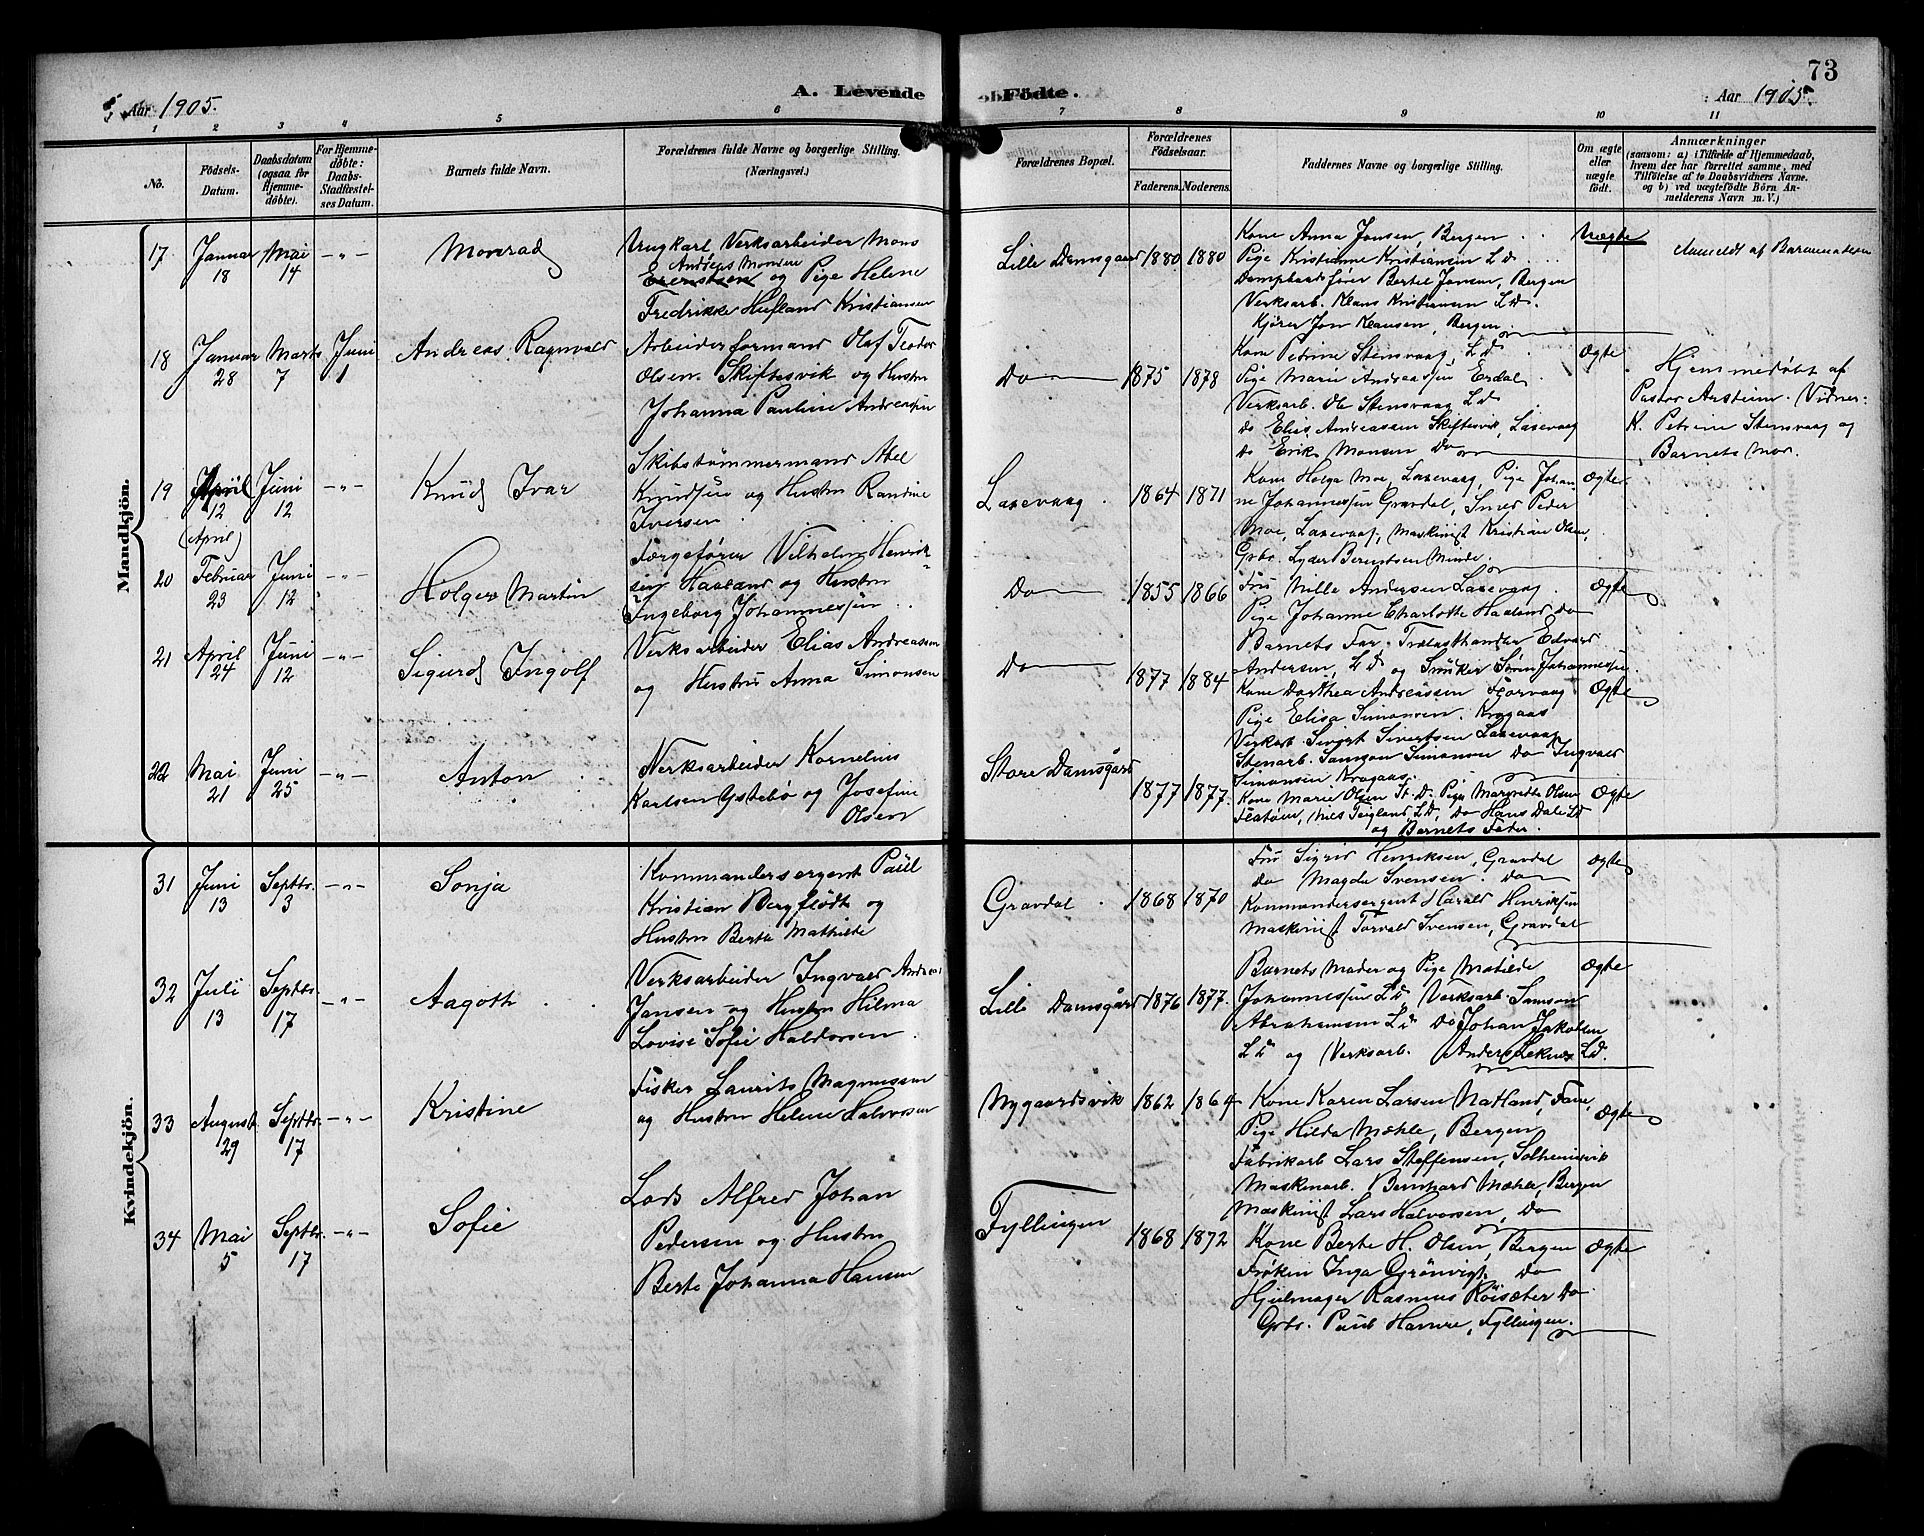 73
Aar 1905.
A. Levende Födte.
Aar 1905.
1 2 3 4 5 6 7 8 9 10 11
No.
Födsels-
Datum.
Daabsdatum
(ogsaa for
Hjemme-
döbte).
For Hjemme-
döbte:
Daabs-
Stadfæstel-
ses Datum.
Barnets fulde Navn.
Forældrenes fulde Navne og borgerlige Stilling.
(Næringsvei.)
Forældrenes Bopæl.
Forældrenes
Födselsaar.
Faderens. Moderens.
Faddernes Navne og borgerlige Stilling.
Om ægte
eller
uægte
födt.
Anmærkninger
(saasom: a) i Tilfælde af Hjemmedaab,
hvem der har forrettet samme, med
Tilföielse af to Daabsvidners Navne,
og b) ved uægtefödte Börn An-
melderens Navn m. V.)
Mandkjön.
17
Januar
18
Mai
14
-"-
Monrad
Ungkarl Verksarbeider Mons
Andreas Monsen
og Pige Helene
Fredrikke Hufland Kristiansen
Lille Damsgaard
1880 1880
Kone Anna Jansen, Bergen
Pige Kristianne Kristiansen L.D.
Dampbaadsfører Bertel Jansen, Bergen
Verksarb. Klaus Kristiansen L.D.
Kjører Jon Klausen, Bergen
Uægte
Anmeldt af Barnemoderen
18
Januar
28
Marts
7
Juni
1
Andreas Ragnvald
Arbeiderformand Olaf Teodor
Olsen Skiftesvik og Hustru
Johanna Pauline Andreassen
Do
1875 1878
Kone Petrine Stensvaag, L.D.
Pige Marie Andreassen Erdal
Verksarb. Ole Stensvaag L.D.
do Elias Andreassen Skiftesvik, Laxevaag
do Erik Monsen Do
Ægte
Hjemmedøbt af
Pastor Arstein. Vidner:
K. Petrine Stensvaag og
Barnets Mor.
19
April
12
(April)
Juni
12
-"-
Knud Ivar
Skibstømmermand Abel
Knudsen og Hustru Randine
Iversen
Laxevaag
1864 1871
Kone Helga Moe, Laxevaag, Pige Johan-
ne Johannessen Gravdal, Smed Peder
Moe, Laxevaag, Maskinist Kristian Olsen,
Grbr. Lyder Berentsen Minde
Ægte
20
Februar
23
Juni
12
-"-
Holger Martin
Færgefører Vilhelm Henrik-
sen Haaland og Hustru
Ingeborg Johannessen
Do
1855 1866
Fru Mille Andersen Laxevaag
Pige Johanne Charlotte Haaland do
Barnets Far. Trælasthandler Edvard
Andersen, L.D. og Snuker Søren Johannessen
Ægte
21
April
24
Juni
12
-"-
Sigurd Ingolf
Verksarbeider Elias Andreassen
og Hustru Anna Simonsen
Do
1877 1884
Kone Dorthea Andreassen Florvaag
Pige Elisa Simonsen. Krogaas
Verkarb. Sivert Sivertsen Laxevaag
Stenarb. Samson Simonsen do Ingvald
Simonsen Krogaas.
Ægte
22
Mai
21
Juni
25
-"-
Anton
Verksarbeider Kornelius
Karlsen Ystebø og Josefine
Olsen
Store Damsgård
1877 1877
Kone Marie Olsen St. D. Pige Margrethe Olsen
Flatøen, Nils Teigland L.D., Do Hans Dale L.D
og Barnets Fader.
Ægte
Kvindekjön.
31
Juni
13
Septbr.
3
-"-
Sonja
Kommandersergent Paul
Kristian Bergflødt og
Hustru Berta Mathilde
Gravdal
1868 1870
Fru Sigrid Henriksen, Gravdal
Do Magda Svensen Do
Kommandersergent Harald Henriksen
Maskinist Torvald Svensen, Gravdal
Ægte
32
Juli
13
Septbr.
17
-"-
Aagoth
Verksarbeider Ingvald Andreas
Jansen og Hustru Hilma
Lovise Sofie Haldorsen
Lille Damsgård
1876 1877
Barnets Moder og Pige Matilde
Johannessen L.D., Verksarb. Samson
Abrahamsen L.D. Do Johan Jakobsen
L.D og Verksarb. Anders Leknes L.D.
Ægte
33
August
29
Septbr.
17
-"-
Kristine
Fisker Laurits Magnussen
og Hustru Helene Halvorsen
Nygaardsvik
1862 1864
Kone Karen Larsen Natland, Fane,
Pige Hilda Mæhle, Bergen
Fabrikarb Lars Steffensen, Solheimsvik
Maskinarb. Bernhard Mæhle, Bergen
Maskinist Lars Halvorsen, Do
Ægte
34
Mai
5
Septbr.
17
-"-
Sofie
Lods Alfred Johan
Pedersen og Hustru
Berte Johanna Hansen
Fyllingen
1868 1872
Kone Berte H. Olsen, Bergen
Frøken Inga Grønvigt Do
Hjulmager Rasmus Röisæter Do
Grbr. Paul Hamre, Fyllingen.
Ægte